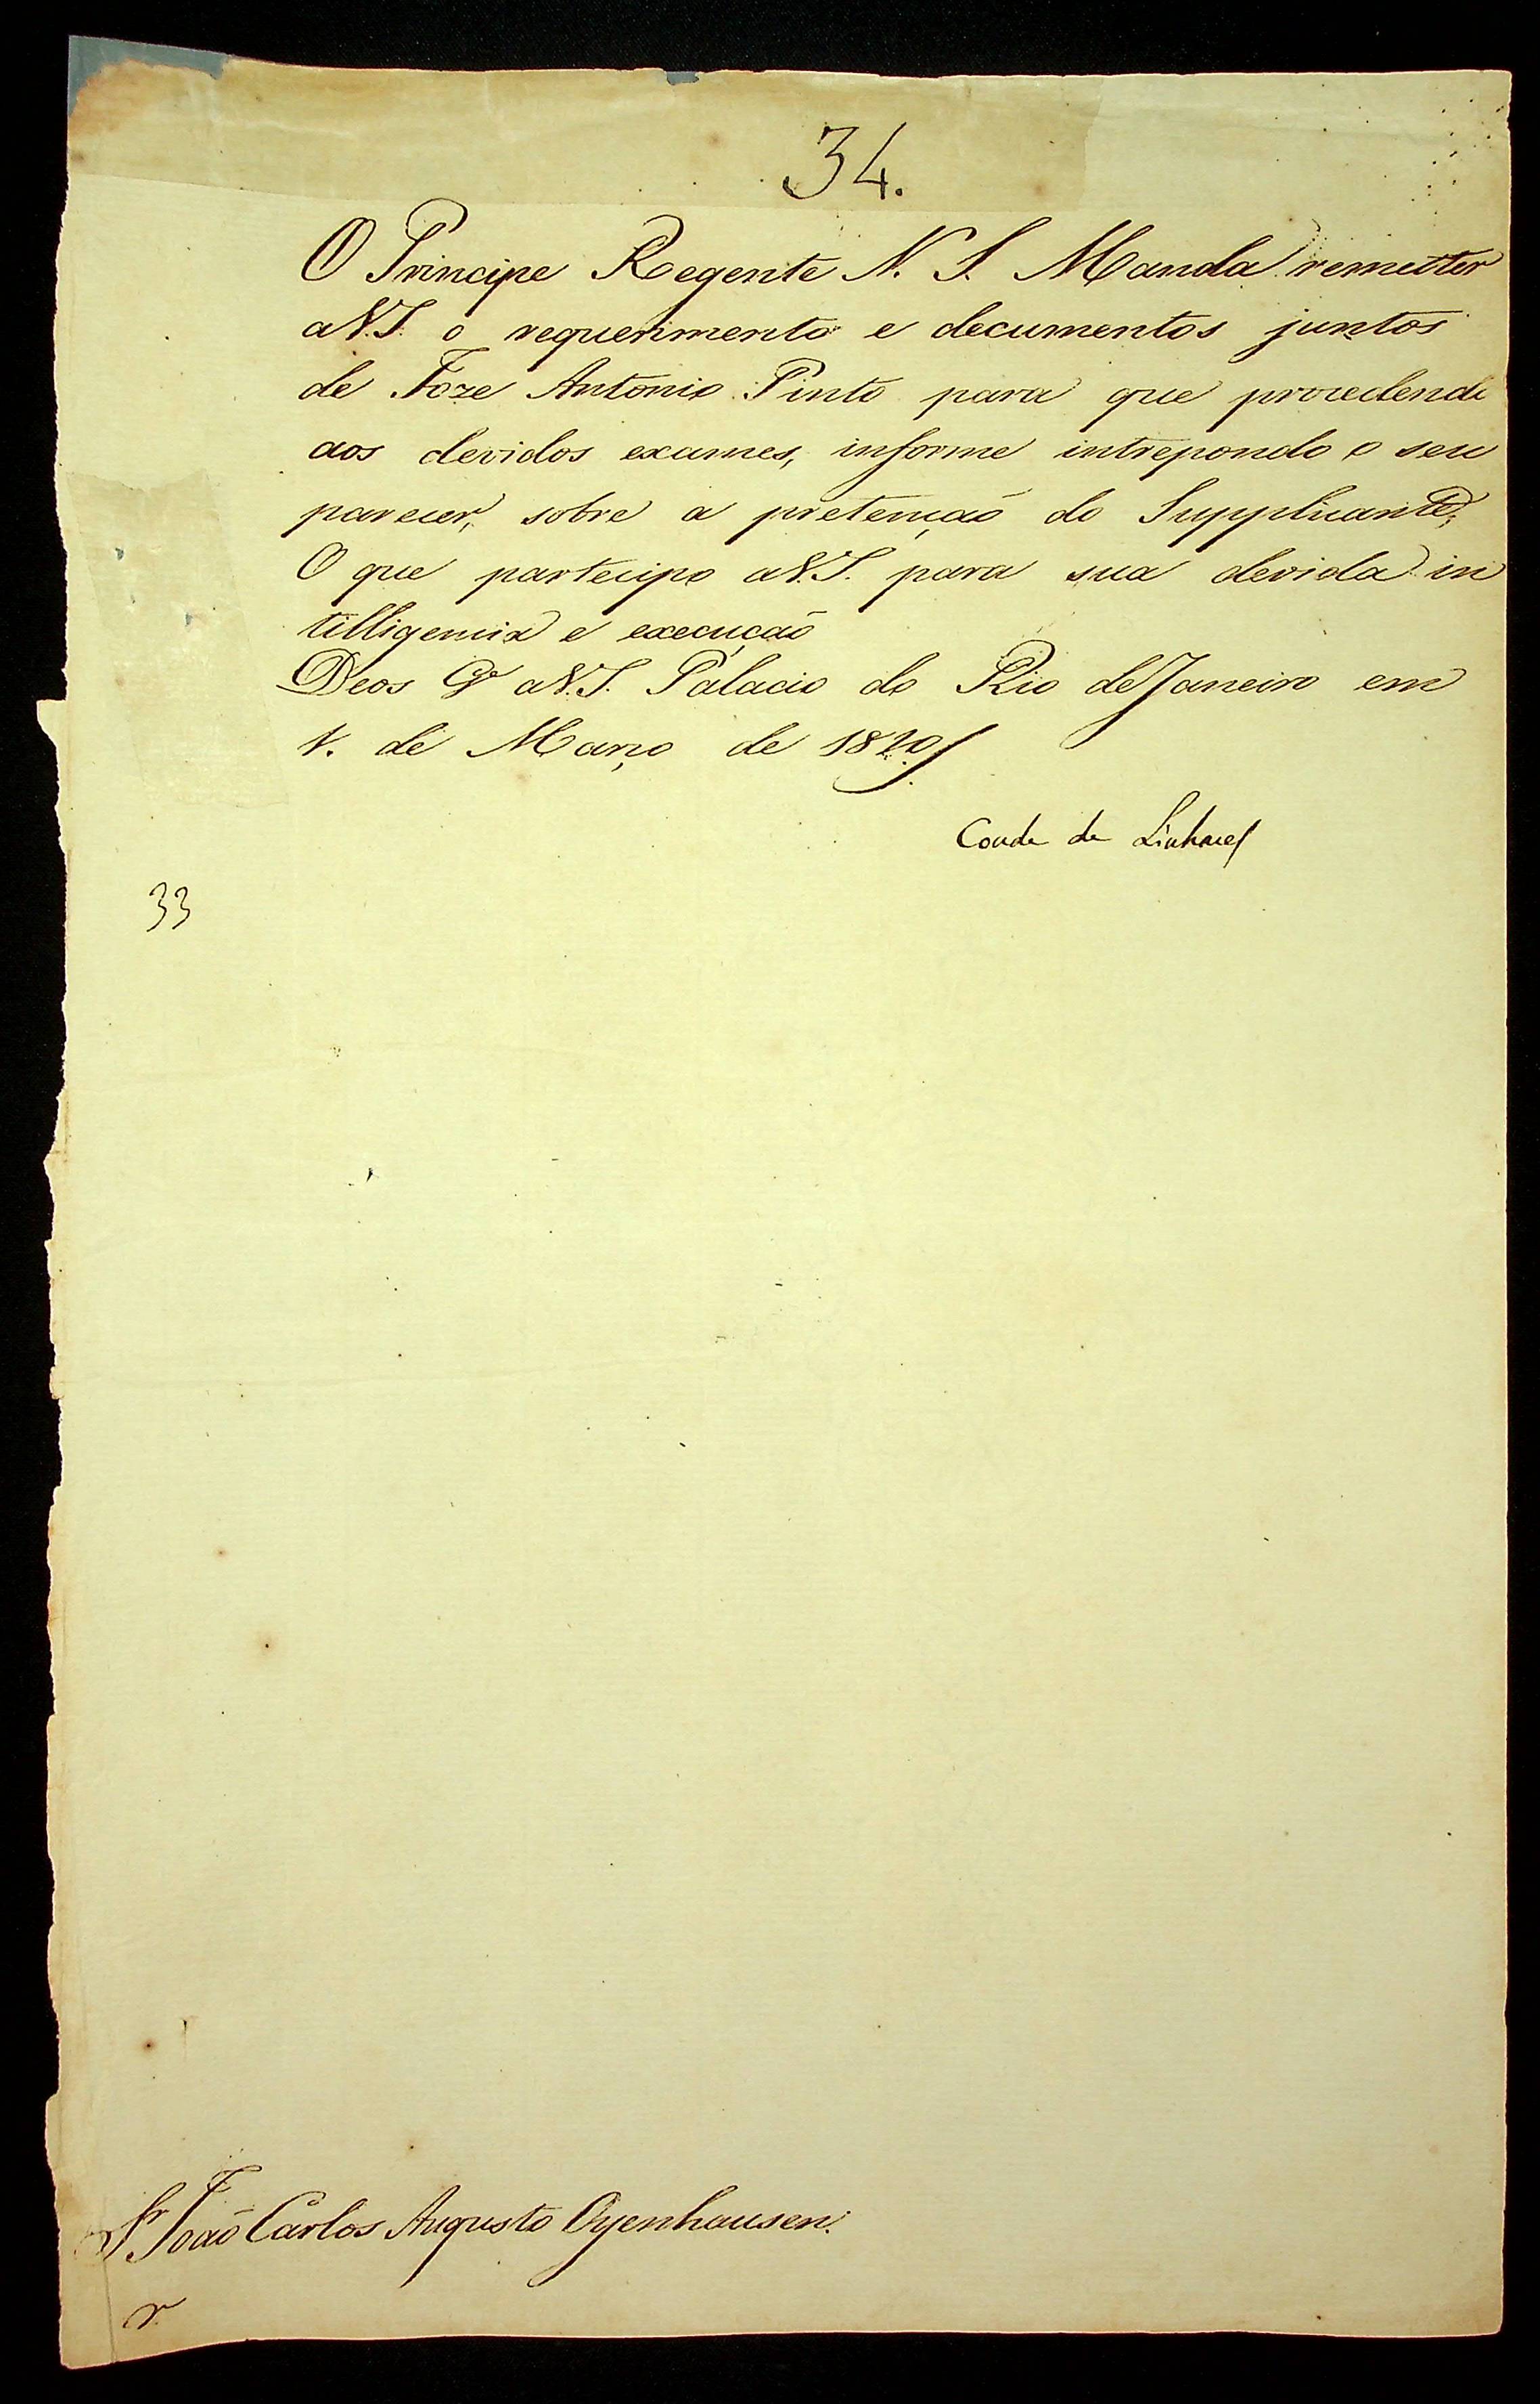 34.
O Principe Regente N. S. Manda remetter
a V.S. o requerimento e decumentos juntos
de Joze Antonio Pinto para que procedendo
aos devidos exames, informe intrepondo o seu
parecer, sobre a pretenção do Supplicante;
O que partecipo a V.S. para sua devida in
tilligencia e execução
Deos G.e a V.S. Palacio do Rio de Janeiro em
1. de Março de 1810
Conde de Linhares
33
S.r João Carlos Augusto Oyenhausen.